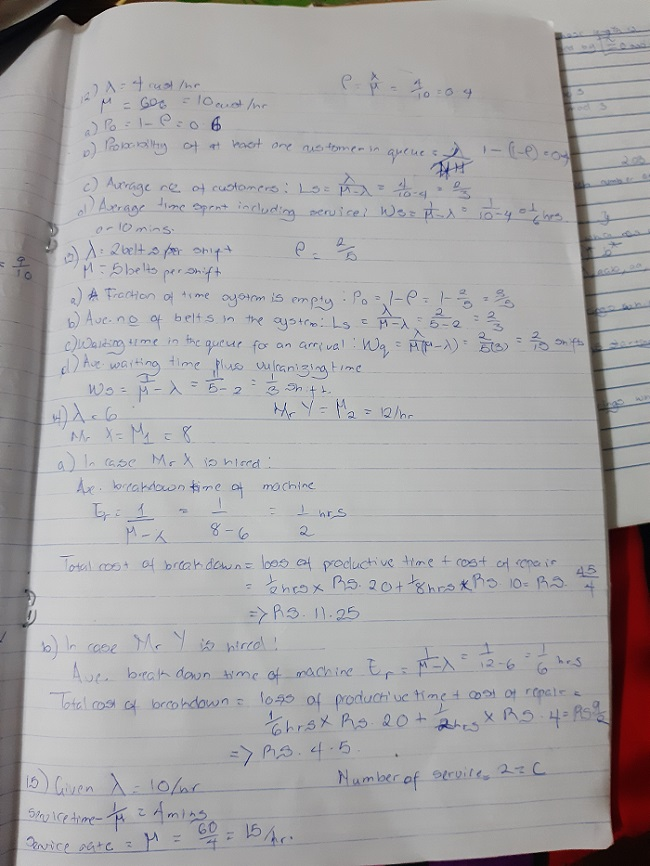 12) λ = 4 cust/hr ρ = λ/μ = 4/10 = 0.4
μ = 606 = 10 cust/hr
a) P₀ = 1 - ρ = 0.6
b) Probability of at least one customer in queue = 1 - (1-ρ) = 0.4
c) Average no. of customers: Ls = λ/μ-λ = 4/10-4 = 2/3
d) Average time spent including service: Ws = 1/μ-λ = 1/10-4 = 1/6 hrs
or 10 mins.
13) λ = 2 belts per shift ρ = 2/5
μ = 5 belts per shift
a) Fraction of time system is empty: P₀ = 1-ρ = 1-2/5 = 3/5
b) Ave. no of belts in the system: Ls = λ/μ-λ = 2/5-2 = 2/3
c) Waiting time in the queue for an arrival: Wq = λ/μ(μ-λ) = 2/5(3) = 2/15 shifts
d) Ave waiting time plus vulcanizing time
Ws = 1/μ-λ = 1/5-2 = 1/3 shift.
14) λ = 6 Mr Y = μ₂ = 12/hr
Mr X = μ₁ = 8
a) In case Mr X is hired:
Ave. breakdown time of machine
Er = 1/μ-λ = 1/8-6 = 1/2 hrs
Total cost of breakdown = loss of productive time + cost of repair
= 1/2 hrs x Rs. 20 + 1/8 hrs x Rs 10 = Rs. 45/4
=> Rs. 11.25
b) In case Mr Y is hired:
Ave. breakdown time of machine Er = 1/μ-λ = 1/12-6 = 1/6 hrs
Total cost of breakdown = loss of productive time + cost of repair =
1/6 hrs x Rs. 20 + x Rs. 4 = Rs
=> Rs. 4.5.
15) Given λ = 10/hr Number of service, 2 = C
service time - 1/μ = 4 mins
service rate = μ = 60/4 = 15/hr.
= 9/10